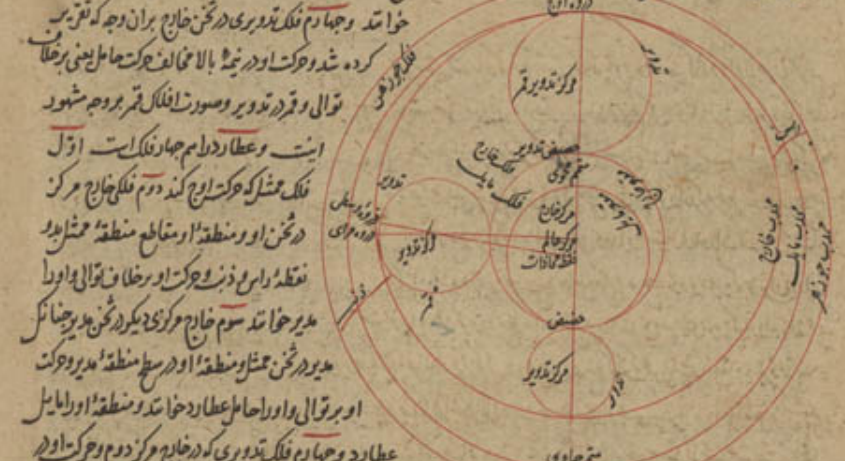 خوانند و چهارم فلک تدویری در ثخن خارج بران وجه که تقریر
کرده شد و حرکت او در نیمهٔ بالا مخالف حرکت حامل یعنی برخلاف
توالی و قمر در تدویر و صورت افلاک قمر بر وجه مشهود
اینست و عطارد را هم چهار فلک است اوّل
فلک ممثل که حرکت اوج کند دوم فلکی خارج مرکز
در ثخن او و منطقهٔ او مقاطع منطقهٔ ممثل بدو
نقطهٔ راس و ذنب و حرکت او برخلاف توالی و اورا
مدیر خوانند سوم خارج مرکزی دیگر در ثخن مدیر چنانکه
مدیر در ثخن ممثل و منطقهٔ او در سطح منطقهٔ مدیر و حرکت
او بر توالی و اورا حامل عطارد خوانند و منطقهٔ اورا مایل
عطارد و چهارم فلک تدویری که در خارج مرکز دوم و حرکت او در
فلک جوزهر
تدویر
مرکز تدویر قمر
حضیض تدویر
فلک خارج
فلک مایل
مرکز خارج
مرکز عالم
نقطه محاذات
تدویر
مرکز تدویر
قمر
ذنب
حضیض
مرکز تدویر
راس
محدب خارج
محدب مایل
محدب جوزهر
متمم حاوی